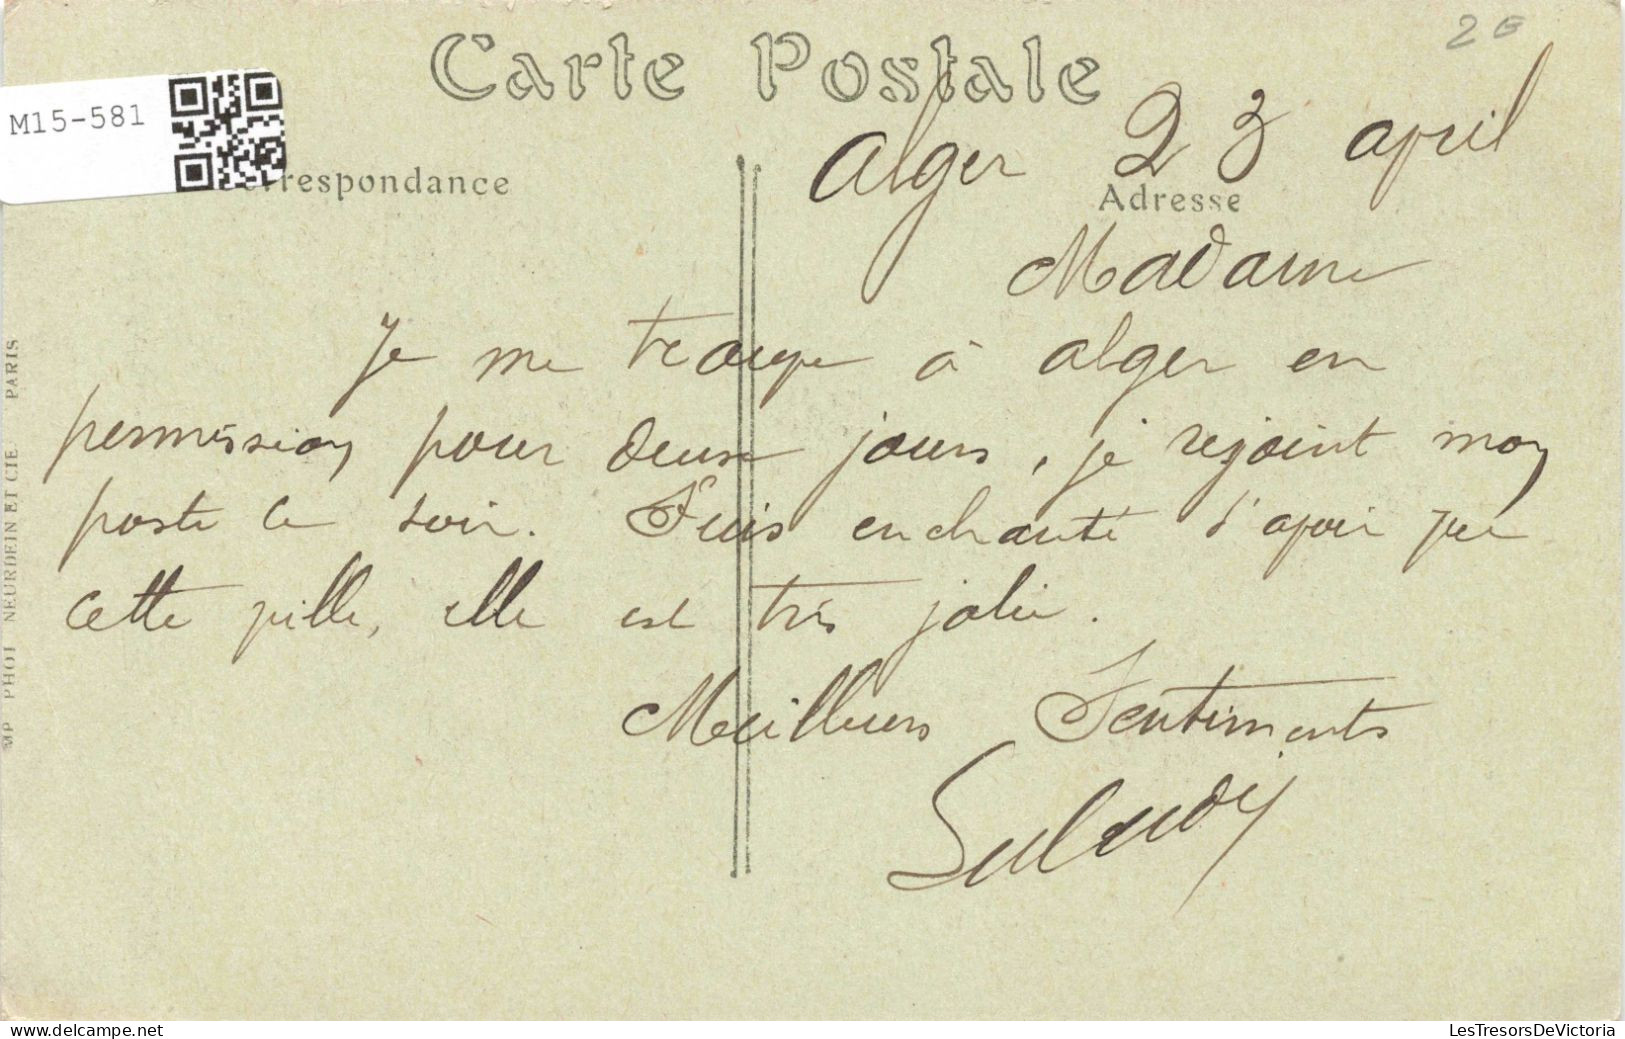 Carte Postale
2€
M15-581
Correspondance
Adresse
Alger 23 april
Madame
Je me troupe à alger en
permission pour deux jours, je rejoint mon
poste ce soir. Suis enchanté d'apoir vue
cette pille, elle est très jolie.
Meilleurs Sentiments
IMP PHOT NEURDEIN ET CIE PARIS
www.delcampe.net
LesTresorsDeVictoria